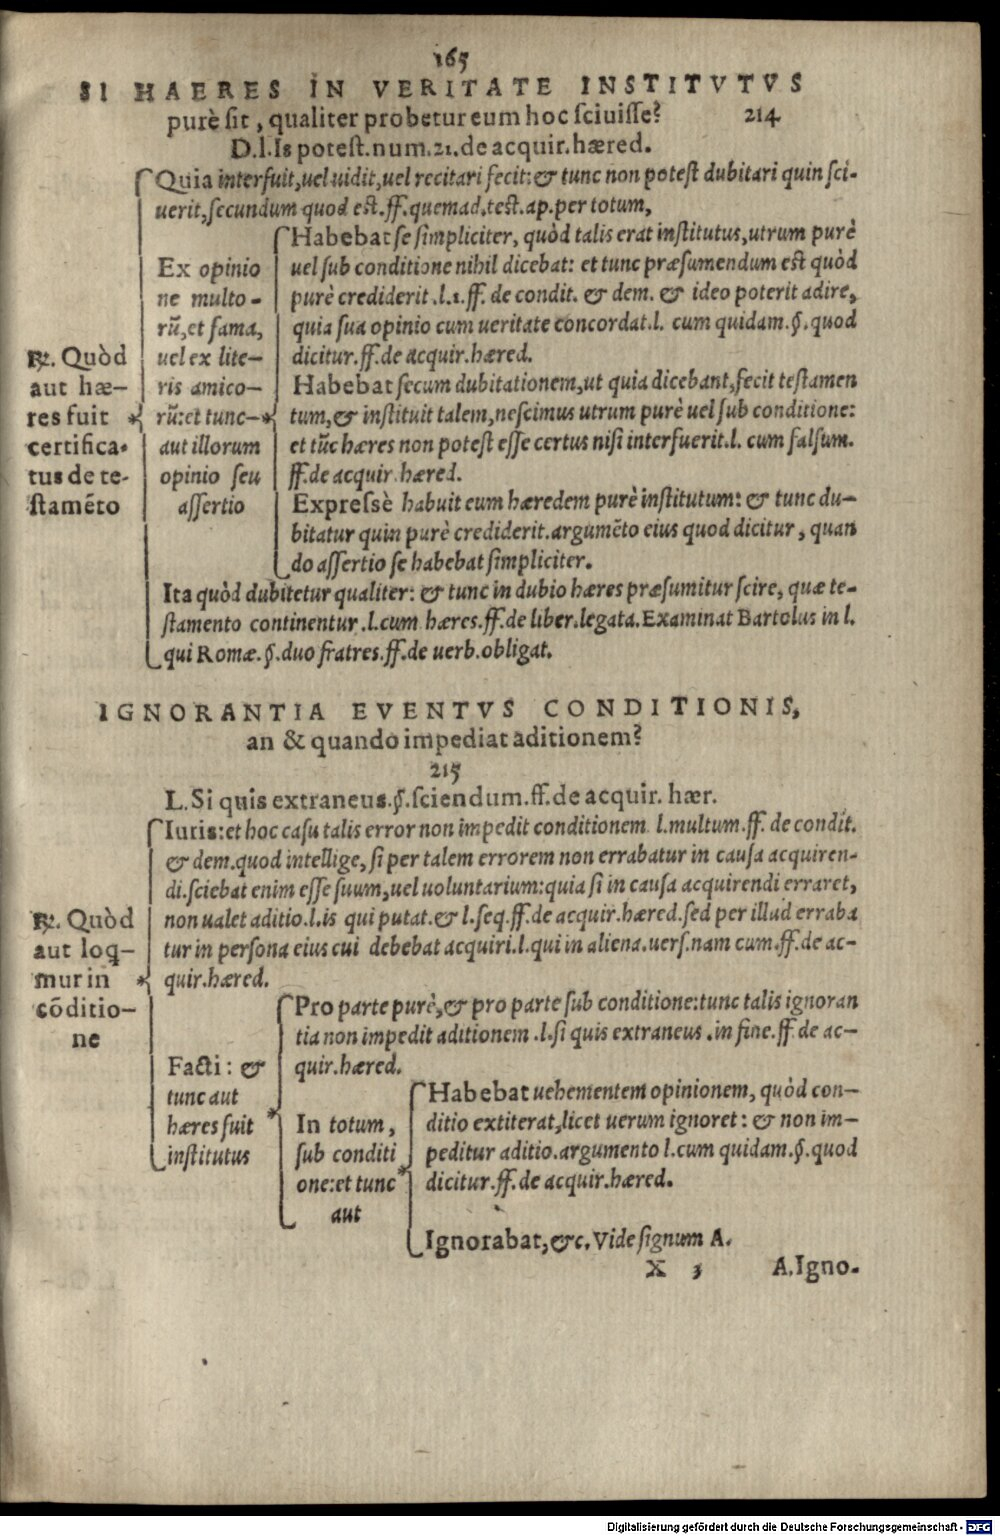 165
SI HAERES IN VERITATE INSTITVTVS
purè sit, qualiter probetur eum hoc sciuisse? 214
D.l.Is potest.num.21.de acquir.hæred.
℞. Quòd
aut hæ-
res fuit
certifica-
tus de te-
stamẽto
Quia interfuit,uel uidit,uel recitari fecit:& tunc non potest dubitari quin sci-
uerit,secundum quod est.ff.quemad.test.ap.per totum,
Ex opinio
ne multo-
rũ,et fama,
uel ex lite-
ris amico-
rũ:et tunc-
aut illorum
opinio seu
assertio
Habebat se simpliciter, quòd talis erat institutus,utrum purè
uel sub conditione nihil dicebat: et tunc præsumendum est quòd
purè crediderit.l.1.ff. de condit. & dem. & ideo poterit adire,
quia sua opinio cum ueritate concordat.l. cum quidam.§.quod
dicitur.ff.de acquir.hæred.
Habebat secum dubitationem,ut quia dicebant,fecit testamen
tum,& instituit talem,nescimus utrum purè uel sub conditione:
et tũc hæres non potest esse certus nisi interfuerit.l. cum falsum.
ff.de acquir.hæred.
Expressè habuit eum hæredem purè institutum: & tunc du-
bitatur quin purè crediderit.argumẽto eius quod dicitur, quan
do assertio se habebat simpliciter.
Ita quòd dubitetur qualiter: & tunc in dubio hæres præsumitur scire, quæ te-
stamento continentur.l.cum hæres.ff.de liber.legata.Examinat Bartolus in l.
qui Romæ.§.duo fratres.ff.de uerb.obligat.
IGNORANTIA EVENTVS CONDITIONIS,
an & quando impediat aditionem?
215
L.Si quis extraneus.§.sciendum.ff.de acquir. hær.
℞. Quòd
aut loq-
mur in
cõditio-
ne
Iuris:et hoc casu talis error non impedit conditionem l.multum.ff. de condit.
& dem.quod intellige, si per talem errorem non errabatur in causa acquiren-
di.sciebat enim esse suum,uel uoluntarium:quia si in causa acquirendi erraret,
non ualet aditio.l.is qui putat.& l.seq.ff.de acquir.hæred.sed per illud erraba
tur in persona eius cui debebat acquiri.l.qui in aliena.uers.nam cum.ff.de ac-
quir.hæred.
Facti: &
tunc aut
hæres fuit
institutus
Pro parte purè,& pro parte sub conditione:tunc talis ignoran
tia non impedit aditionem.l.si quis extraneus.in fine.ff.de ac-
quir.hæred.
In totum,
sub conditi
one:et tunc
aut
Habebat uehementem opinionem, quòd con-
ditio extiterat,licet uerum ignoret: & non im-
peditur aditio.argumento l.cum quidam.§.quod
dicitur.ff.de acquir.hæred.
Ignorabat,&c.Vide signum A.
X 3 A.Igno-
Digitalisierung gefördert durch die Deutsche Forschungsgemeinschaft - DFG